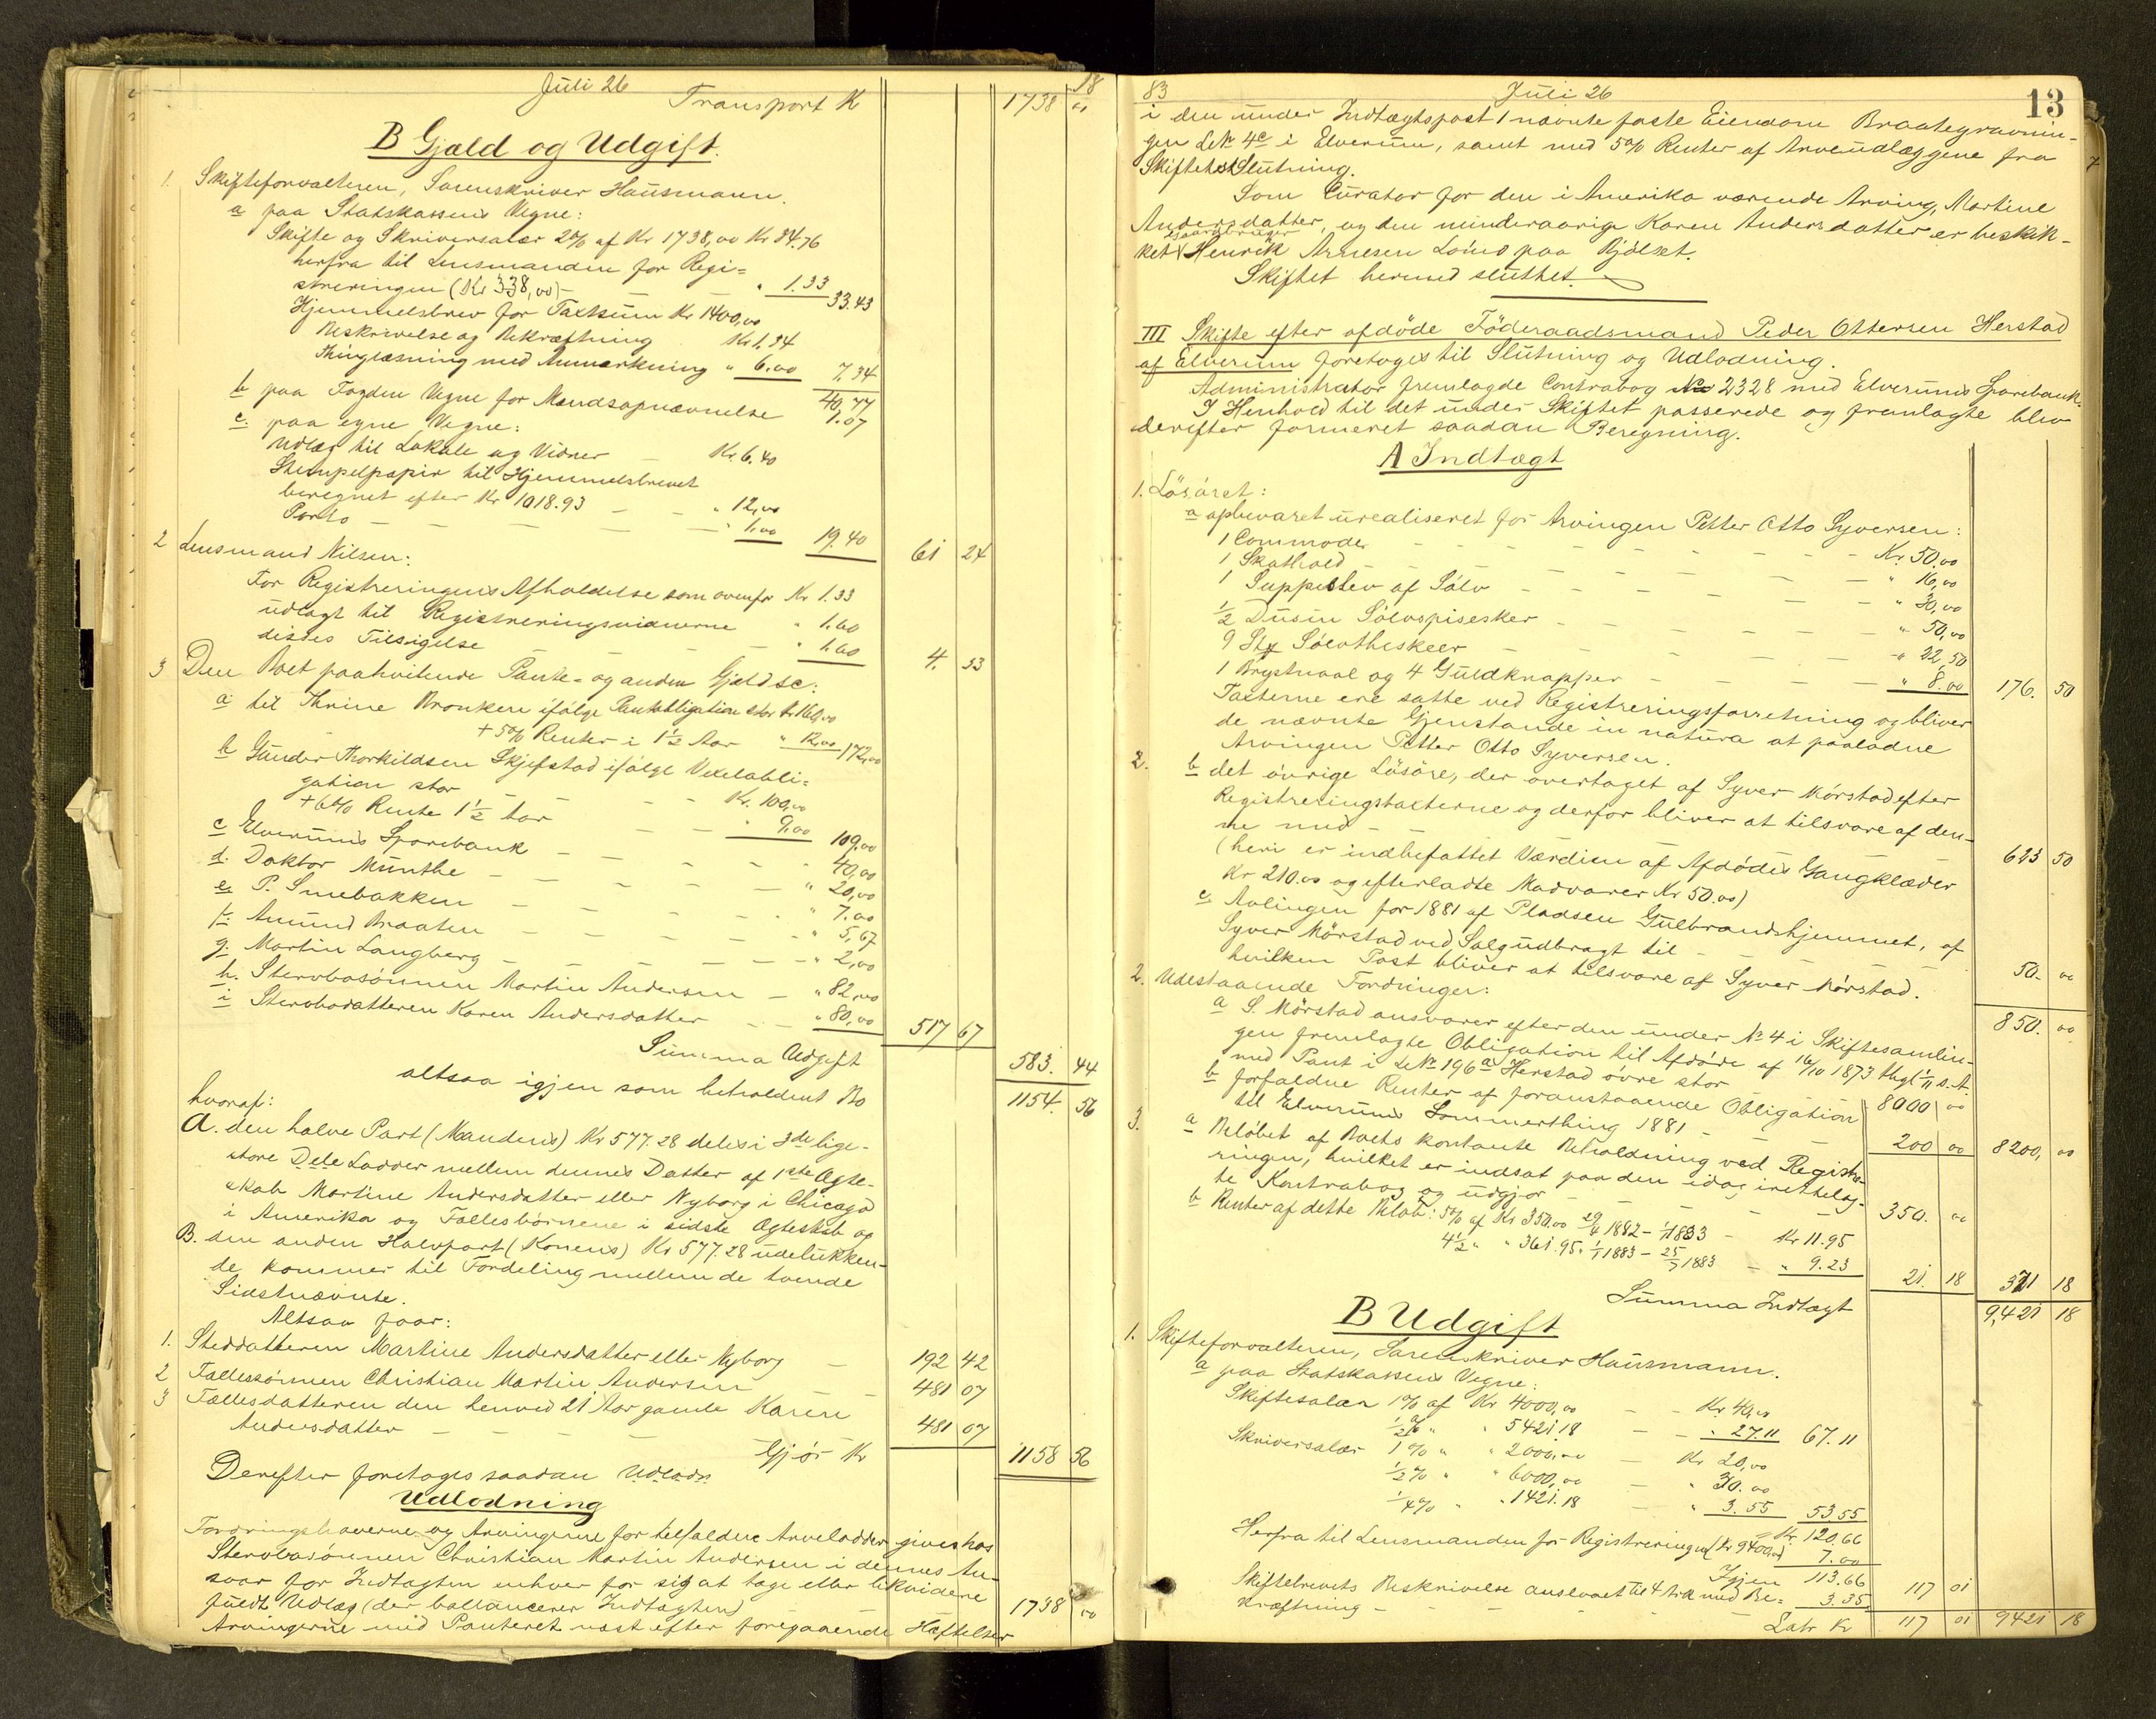 Juli 26 18
Transport Kr 1738 00
B Gjæld og Udgift.
1. Skifteforvalteren, Sorenskriver Hausmann.
a paa Statskassens Vegne:
Skifte og Skriversalær 2% af Kr 1738,00 Kr 34.76
herfra til Lensmanden for Regi=
streringen (Kr 338,00) — — " 1.33 33.43
Hjemmelsbrev for Taxtsum Kr 1400,00
Beskrivelse og Bekræftning Kr 1.34
Thinglæsning med Anmærkning " 6.00 7.34
40,77
b paa Fogdens Vegne for Mændsopnævnelse 1.07
c. paa egne Vegne:
Udlæg til Lokale og Vidner — Kr. 6.40
Stempelpapir til Hjemmelsbrevet
beregnet efter Kr 1018.93 — — " 12,00
Porto — — — — — " 1.00 19.40 61 24
2 Lensmand Nilsen:
For Registreringens Afholdelse som ovenfor Kr 1.33
udlagt til Registreringsvidnerne " 1.60
disses Tilsigelse — — — " 1.60 4. 53
3 Den Boet paahvilende Pante- og anden Gjæld sc:
a til Thrine Bronken ifølge Pantobligation stor Kr 160,00
+ 5% Renter i 1½ Aar " 12,00 172,00
b Gunder Thorkildsen Skjefstad ifølge Vexelobli=
gation stor — — — Kr. 100,00
+ 6% Rente 1½ Aar — — " 9.00 109.00
c Elverums Sparebank — — — — " 40,00
d. Doktor Munthe — — — — — " 20,00
e P. Smebakken — — — — — " 7.00
f. Amund Braaten — — — — — " 5,67
g. Martin Langberg — — — — — " 2,00
h. Stervbosønnen Martin Andersen — " 82,00
i Stervbodatteren Karen Andersdatter — — " 80,00 517 67
Summa Udgift 583. 44
altsaa igjen som beholdent Bo 1154. 56
hvoraf:
A. den halve Part (Mandens) Kr 577.28 deles i 3de lige-
store Dele Lodder mellem dennes Datter af 1ste Ægte-
skab Martine Andersdatter eller Nyborg i Chicago
i Amerika og Fællesbørnene i sidste Ægteskab og
B. den anden Halvpart (Konens) Kr 577.28 udelukken-
de kommer til Fordeling mellem de tvende
Sidstnævnte.
Altsaa faar:
1. Steddatteren Martine Andersdatter eller Nyborg — 192 42
2 Fællessønnen Christian Martin Andersen — — 481 07
3 Fællesdatteren den henved 21 Aar gamle Karen
Andersdatter — — — — — 481 07
Gjør Kr 1158 56
Derefter foretages saadan Udlodn
Udlodning
Fordringshaverne og Arvingerne for tilfaldne Arvelodder gives hos
Stervbosønnen Christian Martin Andersen i dennes An-
svar for Indtægten enhver for sig at tage eller likvidere
fuldt Udlæg (der ballancerer Indtægten) 1738 00
Arvingerne med Panteret næst efter foregaaende Heftelser
83 Juli 26 13
i den under Indtægtspost 1 nævnte faste Eiendom Braategravnin-
gen L.Nr. 4c i Elverum, samt med 5% Renter af Arveudlæggene fra
Skiftets Slutning.
Som Curator for den i Amerika værende Arving, Martine
Andersdatter, og den mindreaarige Karen Andersdatter er beskik-
ket Gaardbruger Henrik Arnesen Løms paa Bjølset.
Skiftet hermed sluttet.
III Skifte efter afdøde Føderaadsmand Peder Ottersen Herstad
af Elverum foretoges til Slutning og Udlodning.
Administrator fremlagde Contrabog No 2328 med Elverums Sparebank.
I Henhold til det under Skiftet passerede og fremlagte blev
derefter formeret saadan Beregning.
A Indtægt
1. Løsøret:
a opbevaret urealiseret for Arvingen Petter Otto Syversen:
1 Commode — — — — — — — Kr. 50.00
1 Skathold — — — — — — — " 16,00
1 Suppeslev af Sølv — — — — — — " 30,00
½ Dusin Sølvspiseskeer — — — — — " 50,00
9 Stk Sølvtheskeer — — — — — " 22,50
1 Brystnaal og 4 Guldknapper — — — — " 8.00 176. 50
Taxterne ere satte ved Registreringsforretning og bliver
de nævnte Gjenstande in natura at paalodne
Arvingen Petter Otto Syversen.
2. b det øvrige Løsøre, der overtaget af Syver Mørstad efter
Registreringstaxterne og derfor bliver at tilsvare af den-
ne med — — — — — — — 623 50
(heri er indbefattet Værdien af Afdødes Gangklæder
Kr 210.00 og efterladte Madvarer Kr 50.00)
c. Avlingen for 1881 af Pladsen Gulbrandshjemmet, af
Syver Mørstad ved Salg udbragt til — — — — 50. 00
hvilken Post bliver at tilsvare af Syver Mørstad.
850. 00
2. Udestaaende Fordringer:
a S. Mørstad ansvarer efter den under No 4 i Skiftesamlin-
gen fremlagte Obligation til Afdøde af 16/10 1873 thgl 1/11 s. A.
med Pant i L.Nr 196a Herstad øvre stor 8000 00
b forfaldne Renter af foranstaaende Obligation
til Elverums Sommerthing 1881 — — — 200 00 8200, 00
3. a Beløbet af Boets kontante Beholdning ved Registre-
ringen, hvilket er indsat paa den idag irettelag-
te Kontrabog og udgjør — — — — 350. 00
b Renter af dette Beløb: 5% af Kr 350.00 29/4 1882 – 1/1 1883 — Kr 11.95
4½ " " 361.95. 1/1 1883 – 25/7 1883 — " 9.23 21. 18 371 18
Summa Indtægt 9,421 18
B Udgift
1. Skifteforvalteren, Sorenskriver Hausmann.
a paa Statskassens Vegne:
Skiftesalær 1% af Kr 4000,00 — — Kr 40,00
½% " " 5421.18 — — " 27.11 67.11
Skriversalær 1% " " 2000,00 — Kr 20,00
½% " " 6000,00 — " 30.00
¼% " " 1421.18 — " 3.55 53.55
= Kr. 120.66
Herfra til Lensmanden for Registreringen (Kr 9400,00) 7.00
Igjen 113.66
Skiftebrevets Beskrivelse anslaaet til 4 Ark med Be=
kræftning — — — — — 3.35 117 01
Latr. Kr 117 01 9421 18